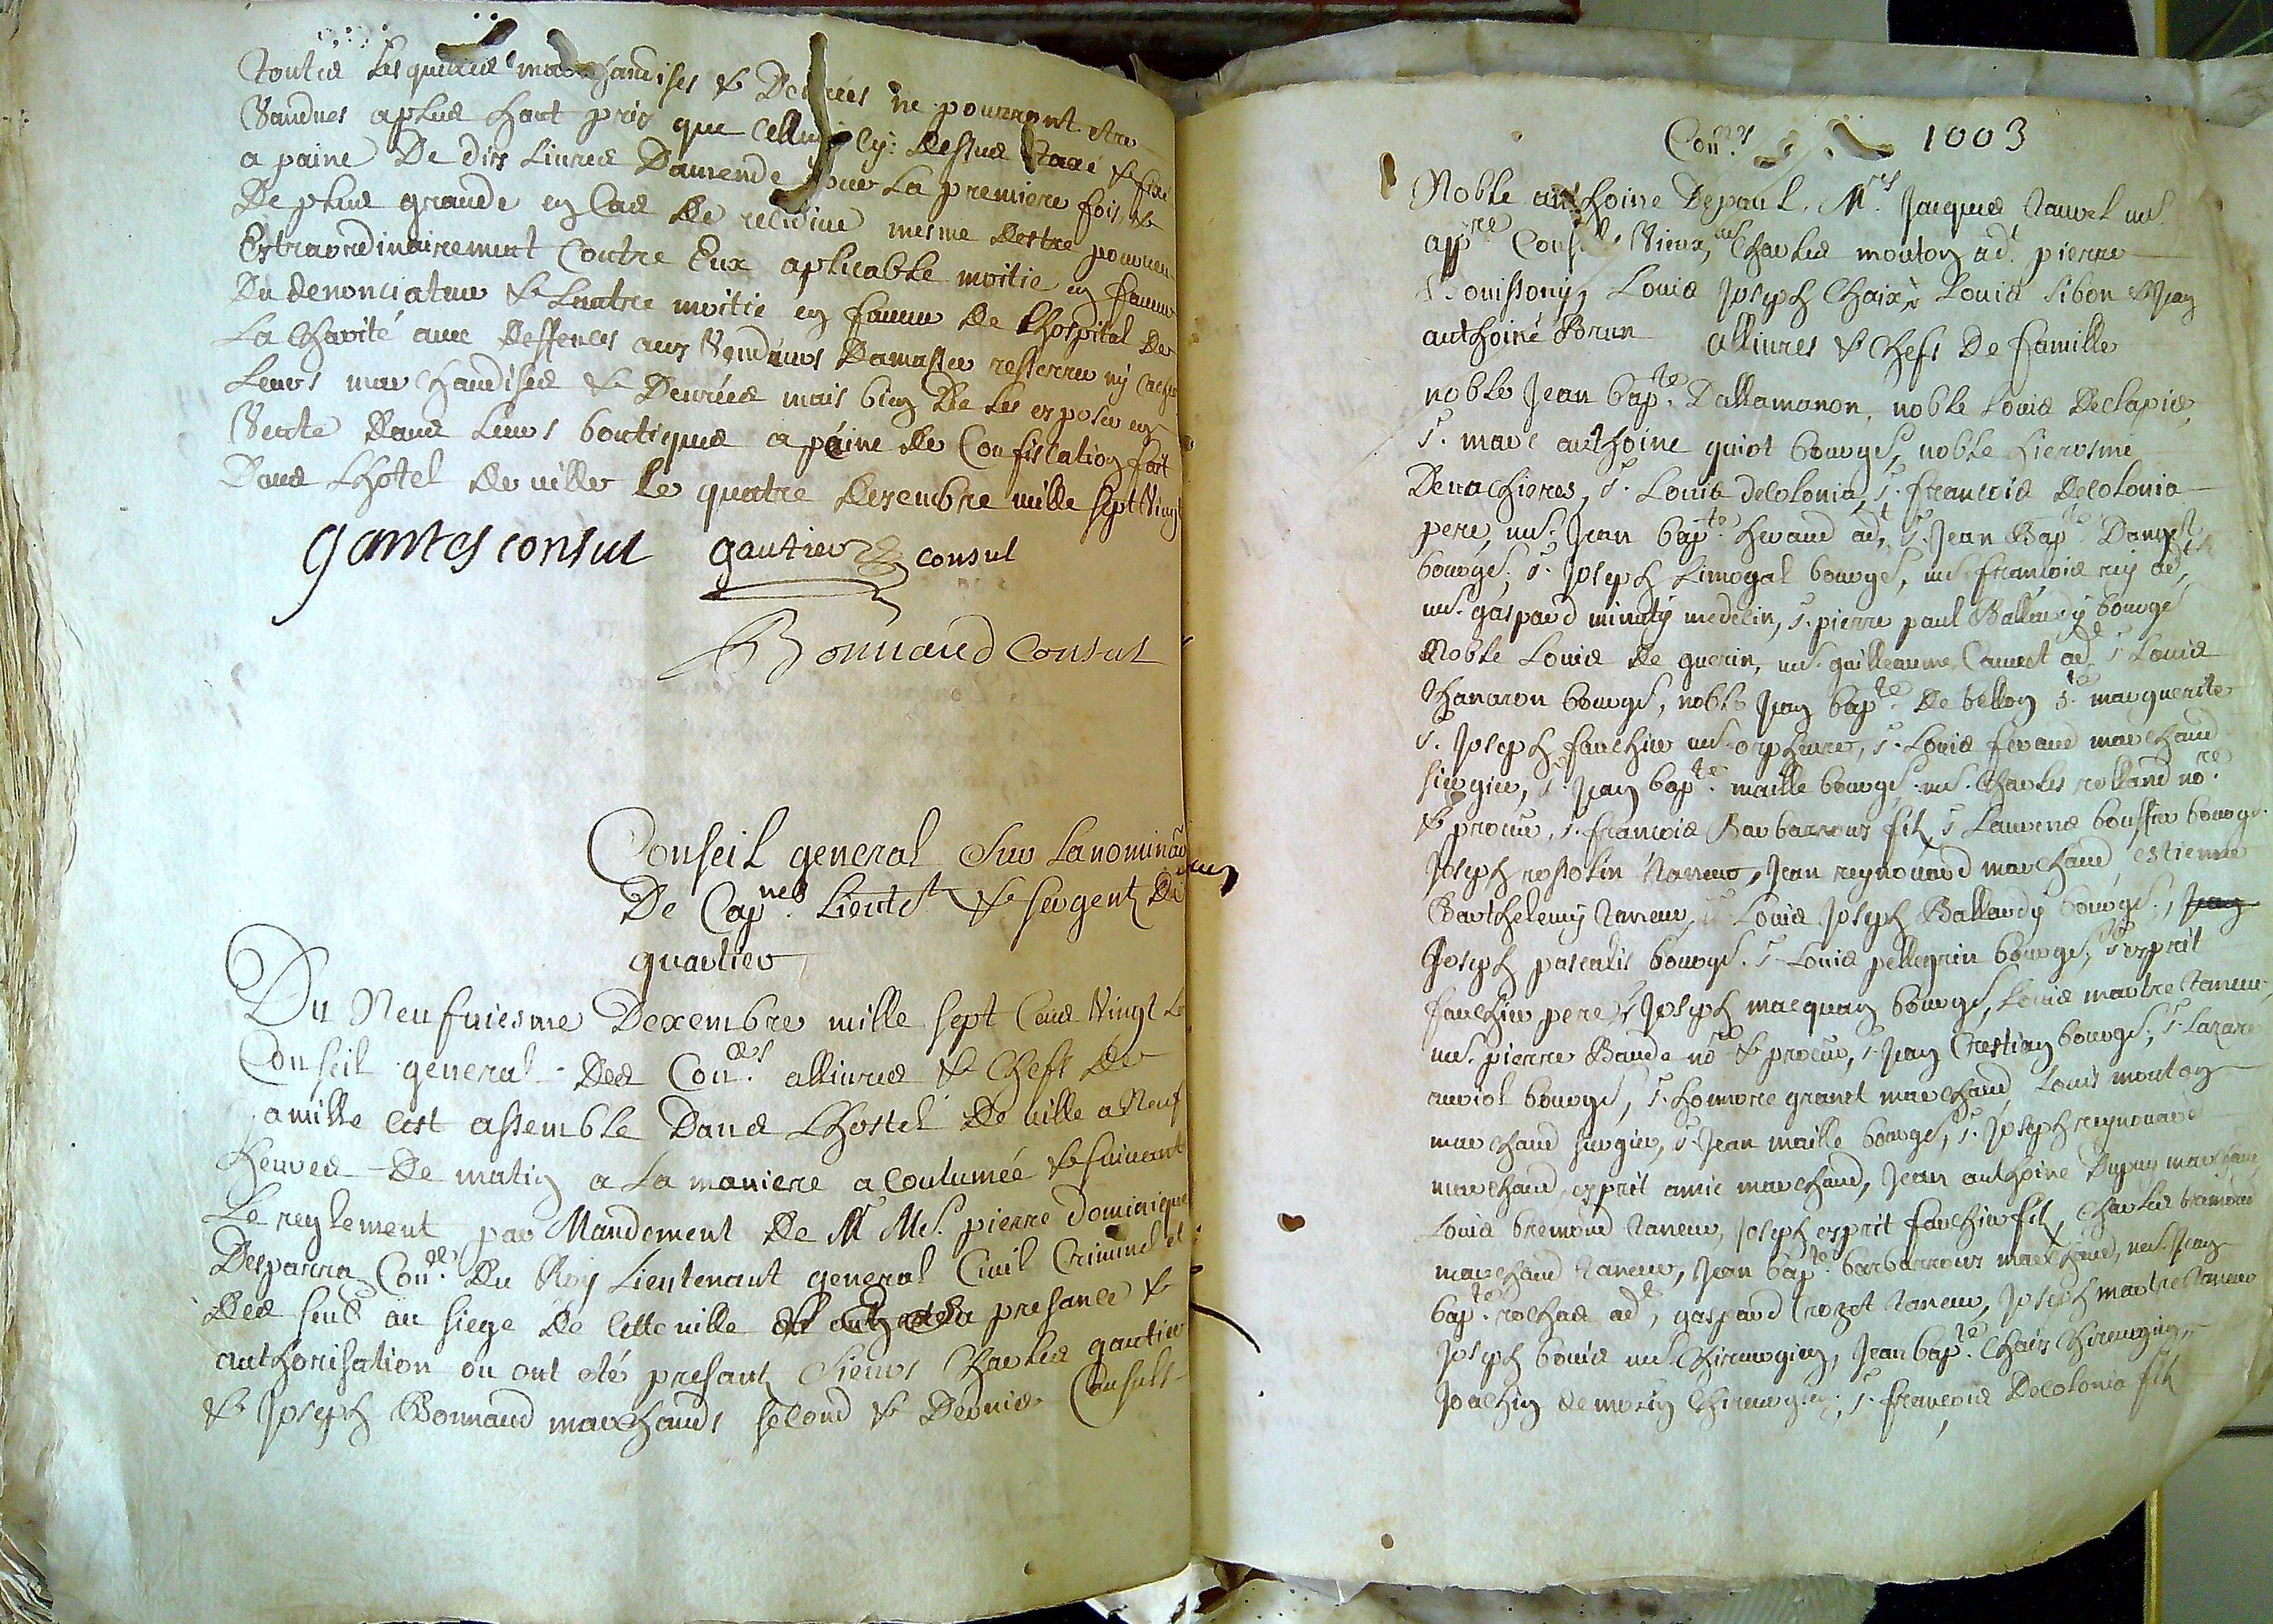 Toutes Lesquelles marchandises & Denrées ne pourront etre
Vandues a plus haut prix que Celluy Cy: dessus taxé & fixé
a paine De dix Livres Damende pour La premiere fois &
De plus grande en Cas De recidive mesme destre pourveu
Extraordinairement Contre Eux aplicable moitie en faveur
Du denonciateur & Lautre moitie en faveur De Lhospital De
La Charité avec Deffences aux Vendeurs Damasser resserrer ny cacher
Leurs marchandises & Denrées mais bien De Les exposer en
Vente Dans Leurs boutiques a paine de Confiscation fait
Dans Lhotel de ville Le quatre desembre mille sept Vingt
gantes consul gautier consul
Bonnaud Consul
Conseil general Sur La nomination
De Capnes. Lieutts & sergents De
quartier
Du Neufviesme Dexembre mille sept Cens Vingt Le
Conseil general Des Coners. allivres & Chefs De
famille cest assemble Dans Lhostel De ville a Neuf
heures De matin a La maniere a Coutumée & suivant
Le reglement par Mandement De Mr Me. pierre dominique
Desparra Coner. Du Roy Lieutenant general Civil Criminel et
Des soub. au siege De Cette ville presance &
authorisation ou ont eté presants Sieurs Charles gautier
& Joseph Bonnaud marchands second & Dernier Consuls
Coners. 1003
Noble anthoine Depaul, Mres Jacques Nauvel
appre Consuls Vieux, me Charles mouton adt. pierre
Louis Joseph Chaix, Louis Sibon & Jean
anthoine Brun allivres & Chefs De famille
noble Jean bapte. Dallamanon, noble Louis Declapies,
s. marc anthoine guiot bourgs, noble hierosme
Denachieres, s. Louis decolonia, s. francois Decolonia
pere, me. Jean bapte. heraud adt, s. Jean Bapte. Danget
bourgs. s. Joseph Limogal bourgs, me. francois rey adt,
me. gaspard minuty medecin, s. pierre paul Ballardy bourgs
Noble Louis de guerin, me. guilleaume Cauvet adt s Louis
Chanaron bourgs, noble Jean bapte. De bellon ste. marguerite
s. Joseph fauchier me. orphevre, s. Louis feraud marchand
sirgier, s. Jean bapte. maille bourgs. me. Charles rolland nore.
& procur, s. francois Barbarroux fils, s Laurens bouffier bourgs.
Joseph rossolin Taneur, Jean reynouard marchand, estienne
Barthelemy Taneur, s Louis Joseph Ballardy bourgs., Jean
Joseph pascalis bourgs. s Louis pellegrin bourgs, s esprit
fauchier pere, s Joseph macquan bourgs, Louis martre taneur,
me. pierre Baude nore & procur, s Jean Chrestian bourgs, s. Lazare
auriol bourgs, s. honnore granet marchand, Louis mouton
marchand sirgier, s. Jean maille bourgs, s. Joseph reynouard
marchand, esprit amic marchand, Jean anthoine Dupuy marchand
Louis bremond taneur, Joseph esprit fauchier fils, Charles bremond
marchand taneur, Jean bapte. barbarroux marchand, me. Jean
bapte. rochas adt, gaspard Crozet taneur, Joseph martre taneur
Joseph bouis me. Chirurgien, Jean bapte. Chaix Chirurgien,
Joachin demorin Chirurgien, s. francois Decolonia fils